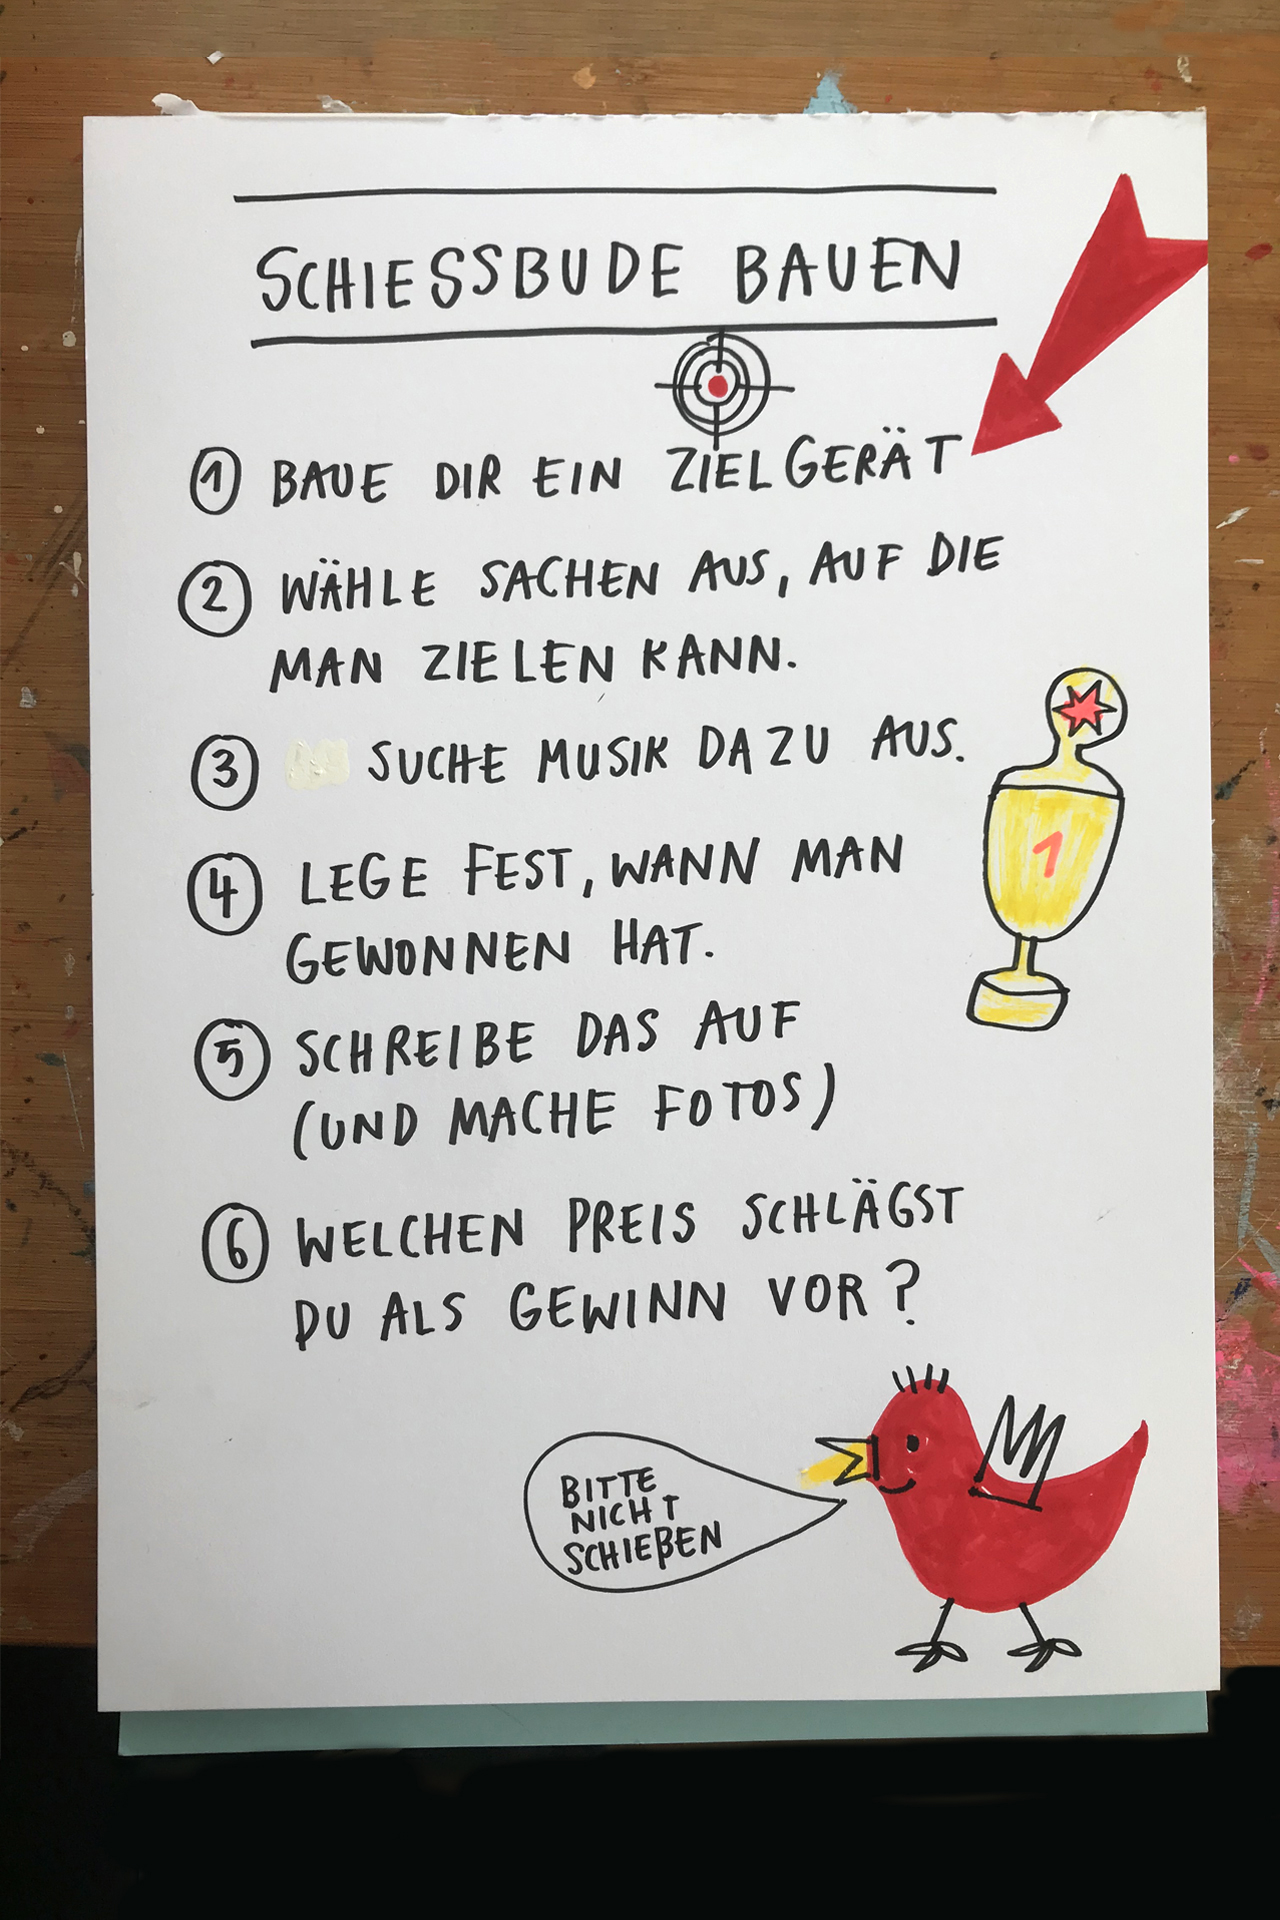 SCHIESSBUDE BAUEN
1 BAUE DIR EIN ZIELGERÄT
2 WÄHLE SACHEN AUS, AUF DIE
MAN ZIELEN KANN.
3 SUCHE MUSIK DAZU AUS.
4 LEGE FEST, WANN MAN
GEWONNEN HAT.
1
5 SCHREIBE DAS AUF
(UND MACHE FOTOS)
6 WELCHEN PREIS SCHLÄGST
DU ALS GEWINN VOR?
BITTE
NICHT
SCHIEßEN